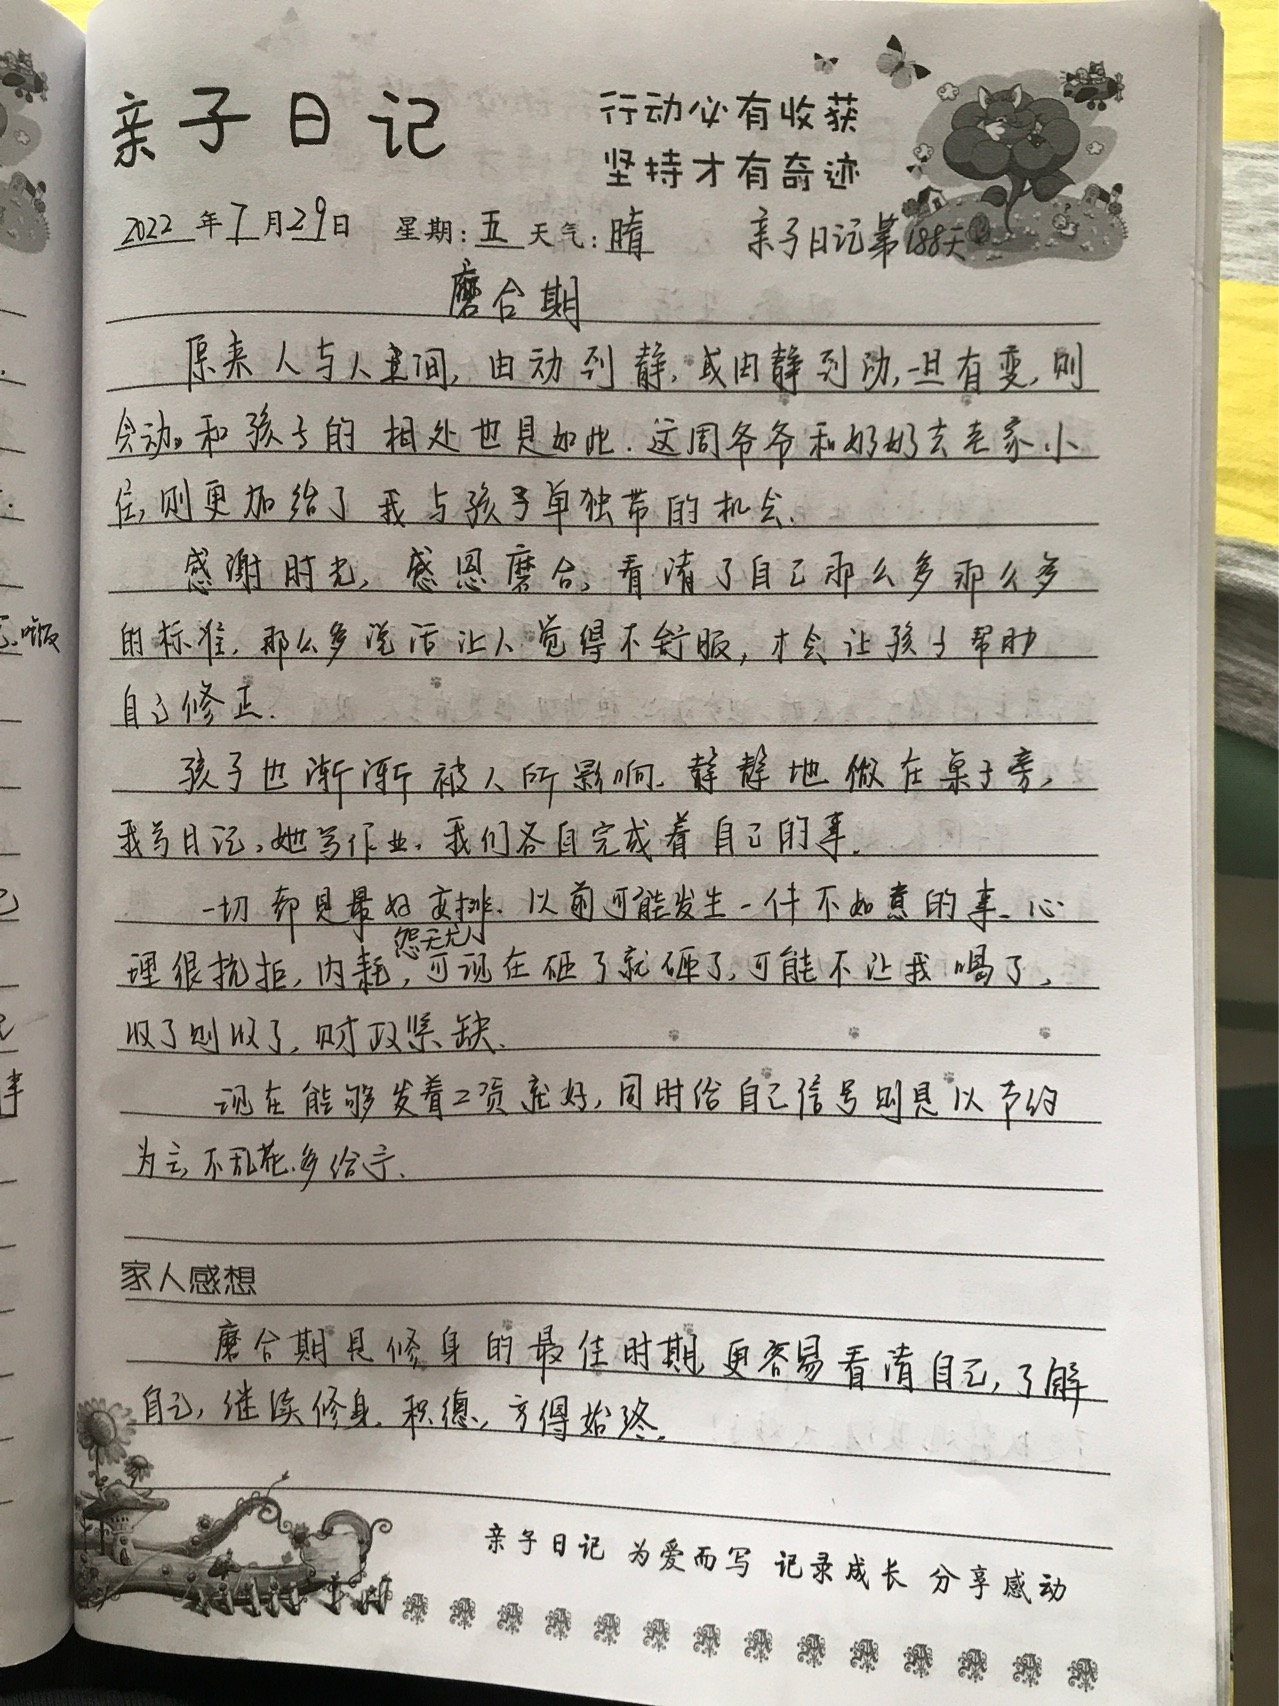 亲子日记
行动必有收获
坚持才有奇迹
2022年7月29日 星期:五 天气:晴 亲子日记第188天
磨合期
原来人与人之间,由动到静,或由静到动,一旦有变,则
会动。和孩子的相处也是如此.这周爷爷和奶奶去老家小
住,则更加给了我与孩子单独带的机会.
感谢时光,感恩磨合,看清了自己那么多那么多
的标准,那么多说话让人觉得不舒服,才会让孩子帮助
自己修正.
孩子也渐渐被人所影响.静静地做在桌子旁,
我写日记,她写作业,我们各自完成着自己的事.
一切都是最好安排.以前可能发生一件不如意的事、心
怨天尤人
理很抗拒,内耗,可现在砸了就砸了,可能不让我喝了,
收了则收了,财政紧缺.
现在能够发着工资就好,同时给自己信号则是以节约
为主,不乱花.多给予.
家人感想
磨合期是修身的最佳时期,更容易看清自己,了解
自己,继续修身,积德,方得始终.
亲子日记 为爱而写 记录成长 分享感动